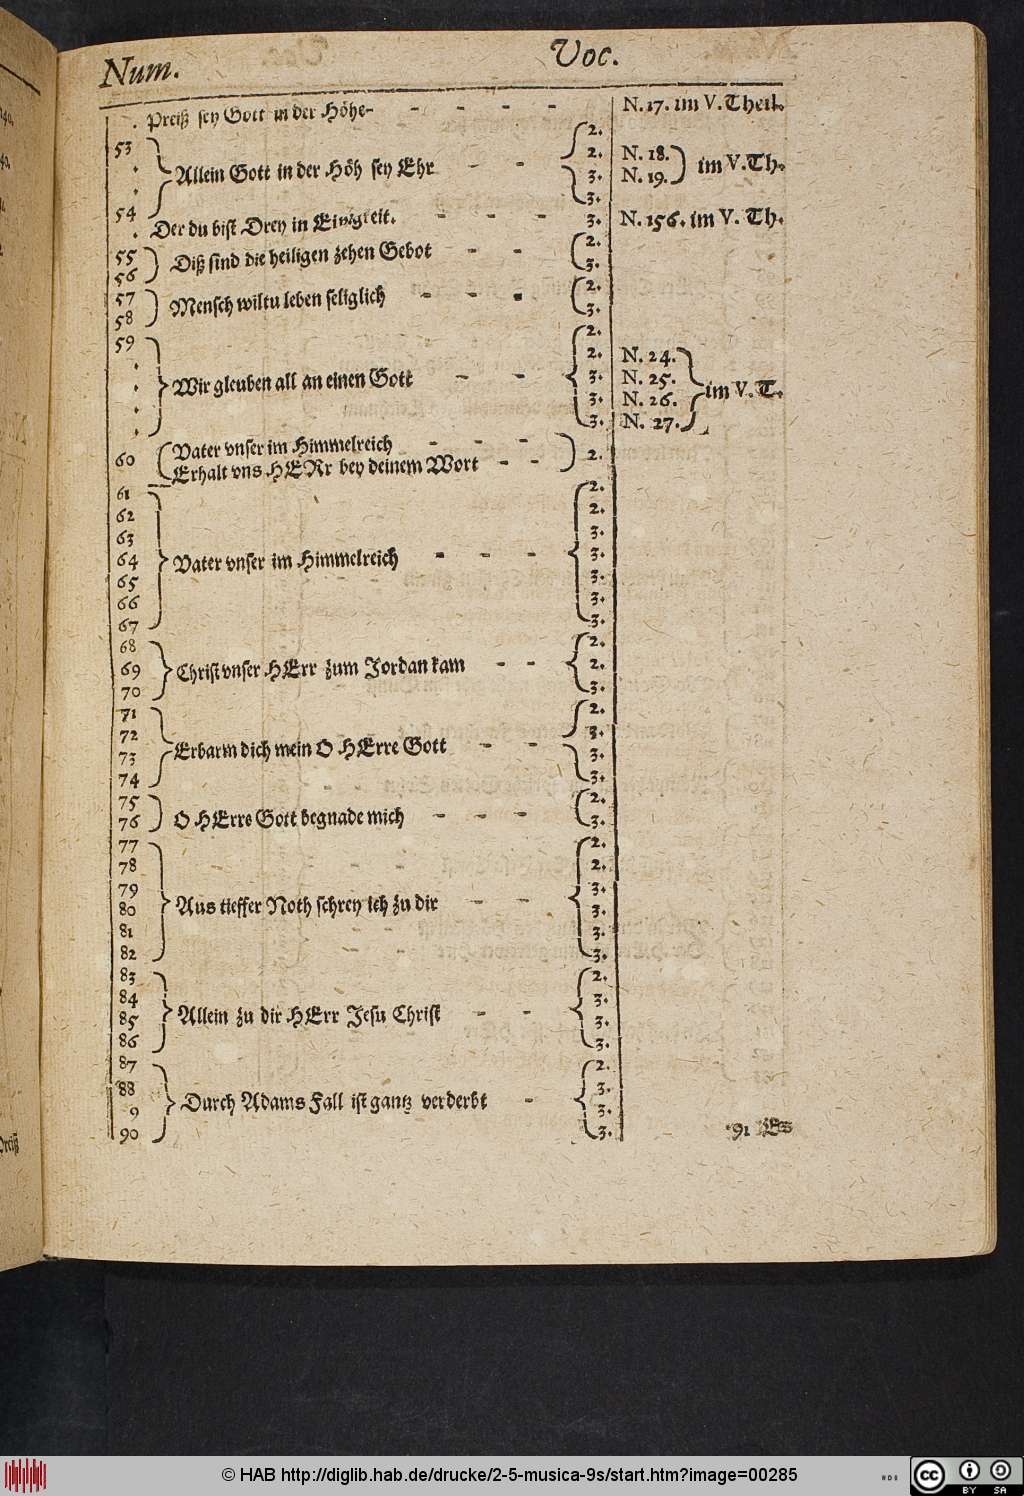 Num.
Voc.
. Preiß sey Gott in der Höhe- - - - - N.17. im V. Theil.
2.
53
. Allein Gott in der Höh sey Ehr - - 2. N. 18. im V. Th.
. 3. N. 19.
3.
54
. Der du bist Drey in Einigkeit. - - - 3. N. 156. im V. Th.
55 Diß sind die heiligen zehen Gebot - - 2.
56 3.
57 Mensch wiltu leben seliglich - - - 2.
58 3.
59 2.
. 2. N. 24.
. Wir gleuben all an einen Gott - - 3. N. 25. im V. T.
. 3. N. 26.
. 3. N. 27.
60 Vater vnser im Himmelreich - - - 2.
Erhalt vns HERr bey deinem Wort - -
61 2.
62 2.
63 3.
64 Vater vnser im Himmelreich - - - 3.
65 3.
66 3.
67 3.
68 2.
69 Christ vnser HErr zum Jordan kam - - 2.
70 3.
71 2.
72 3.
73 Erbarm dich mein O HErre Gott - - 3.
74 3.
75 2.
76 O HErre Gott begnade mich - - - 3.
77 2.
78 2.
79 3.
80 Aus tieffer Noth schrey ich zu dir - - 3.
81 3.
82 3.
83 2.
84 3.
85 Allein zu dir HErr Jesu Christ - - 3.
86 3.
87 2.
88 3.
9 Durch Adams Fall ist gantz verderbt - 3.
90 3.
91 Es
© HAB http://diglib.hab.de/drucke/2-5-musica-9s/start.htm?image=00285
cc BY SA